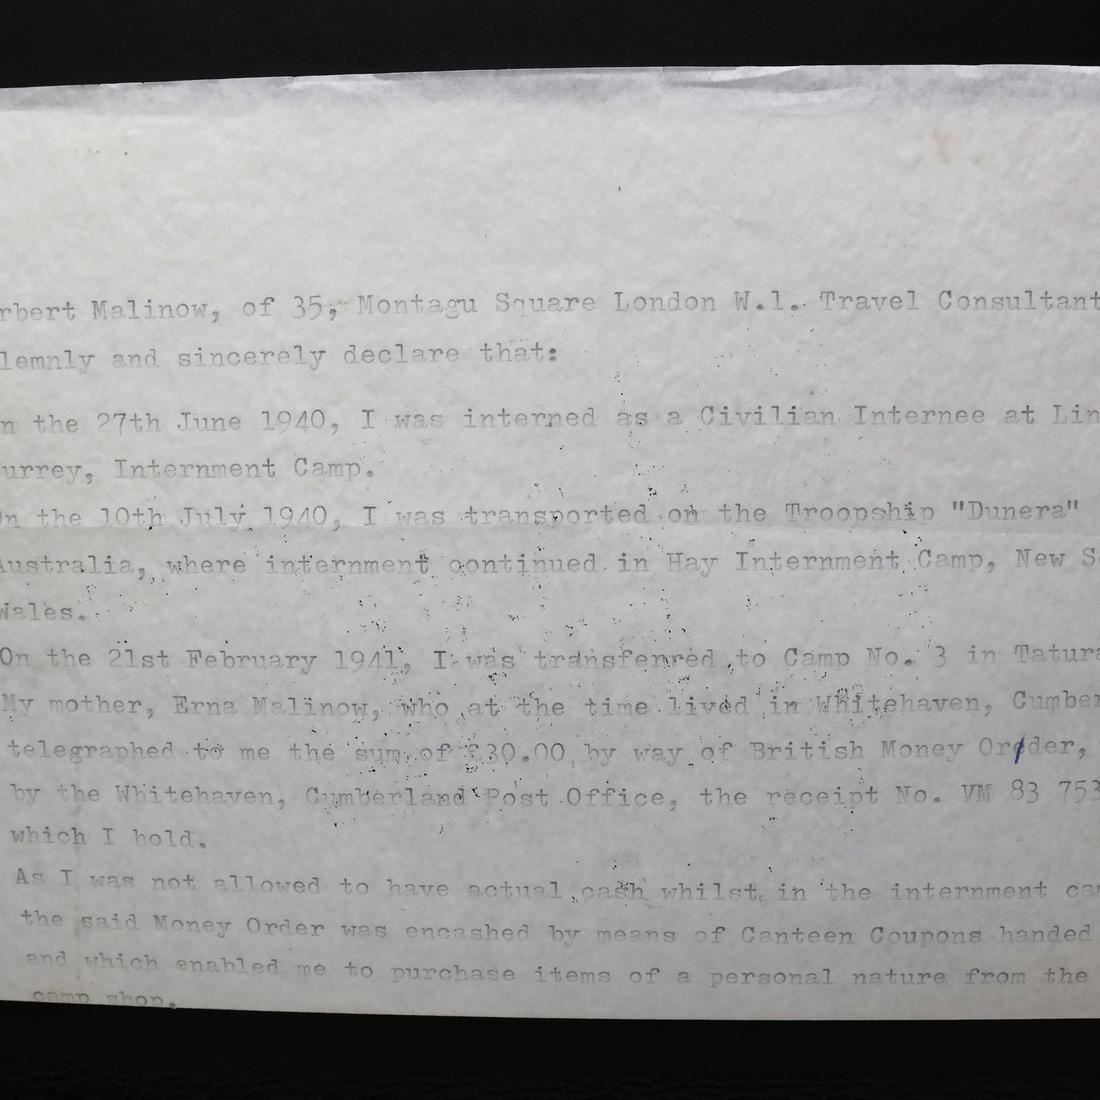 rbert Malinow, of 35, Montagu Square London W.1. Travel Consultant
lemnly and sincerely declare that:
n the 27th June 1940, I was interned as a Civilian Internee at Lin
urrey, Internment Camp.
On the 10th July 1940, I was transported on the Troopship "Dunera"
Australia, where internment continued in Hay Internment Camp, New So
Wales.
On the 21st February 1941, I was transferred to Camp No. 3 in Tatura
My mother, Erna Malinow, who at the time lived in Whitehaven, Cumber
telegraphed to me the sum of £30.00 by way of British Money Or/der,
by the Whitehaven, Cumberland Post Office, the receipt No. VM 83 753
which I hold.
As I was not allowed to have actual cash whilst in the internment ca
the said Money Order was encashed by means of Canteen Coupons handed
and which enabled me to purchase items of a personal nature from the
camp shop.